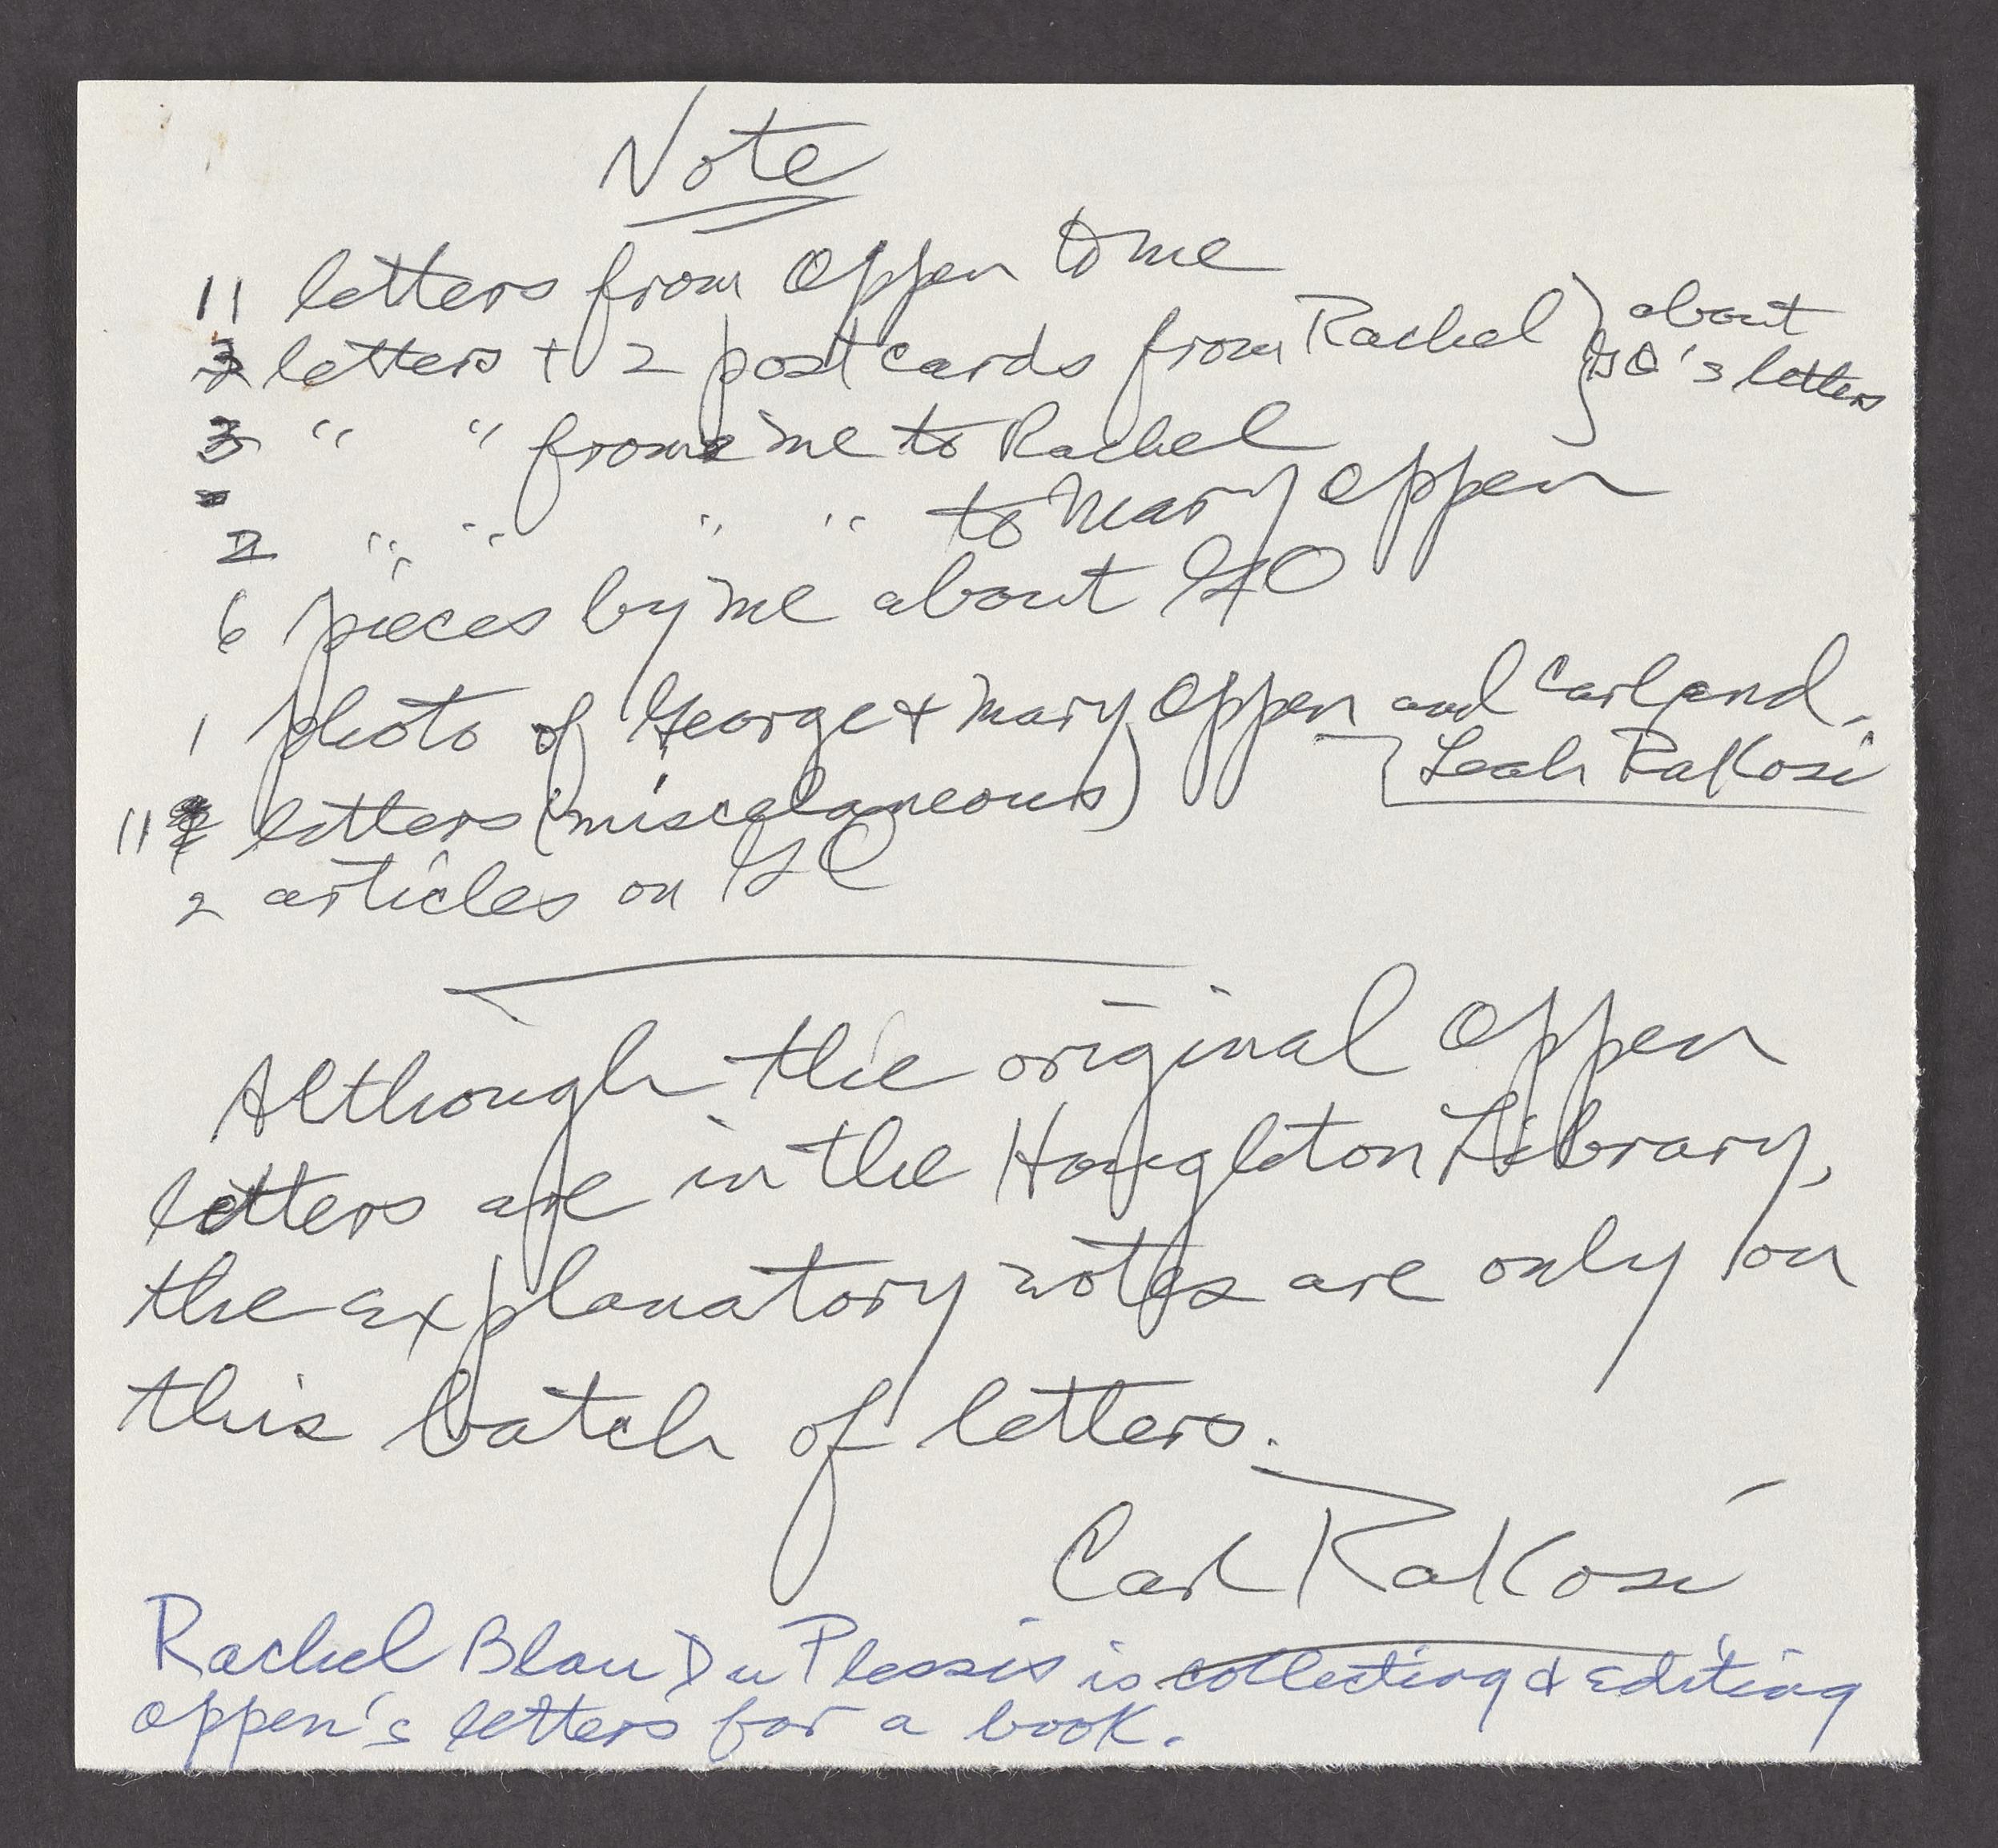 Note
11 letters from Oppen to me
3 letters + 2 postcards from Rachel } about
GO's letters
3 " " from me to Rachel
2 " " " " to Mary Oppen
6 pieces by me about GO
1 photo of George + Mary Oppen and Carl and
Leah Rakosi
11 letters (miscelaneous)
2 articles on GO
Although the original Oppen
letters are in the Houghton Library,
the explanatory notes are only on
this batch of letters.
Carl Rakosi
Rachel Blau Du Plessis is collecting & editing
Oppen's letters for a book.